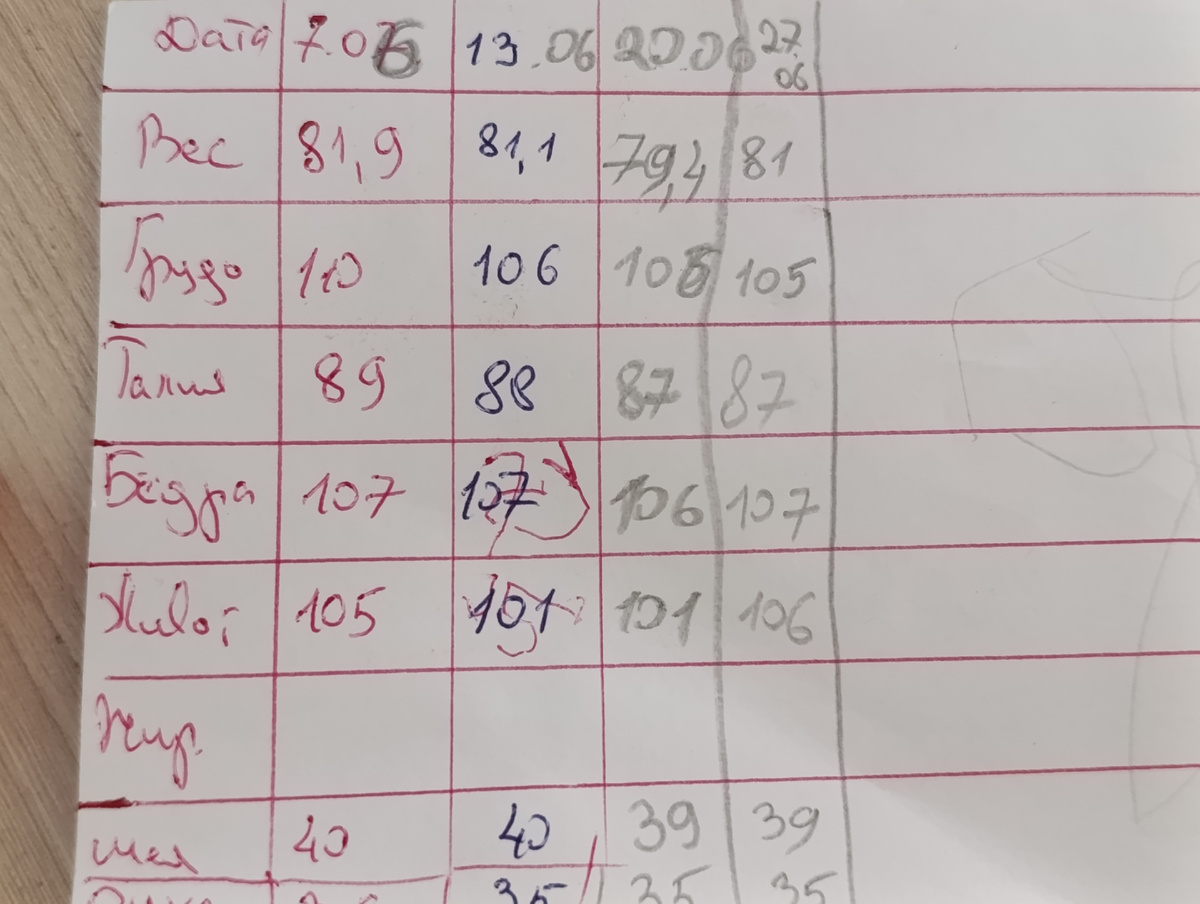 Дата 7.06 13.06 20.06 27.06
Вес 81,9 81,1 79,4 81
Грудь 110 106 105 105
Талия 89 88 87 87
Бёдра 107 107 106 107
Живот 105 101 101 106
Жир.
шея 40 40 39 39
35 35 35